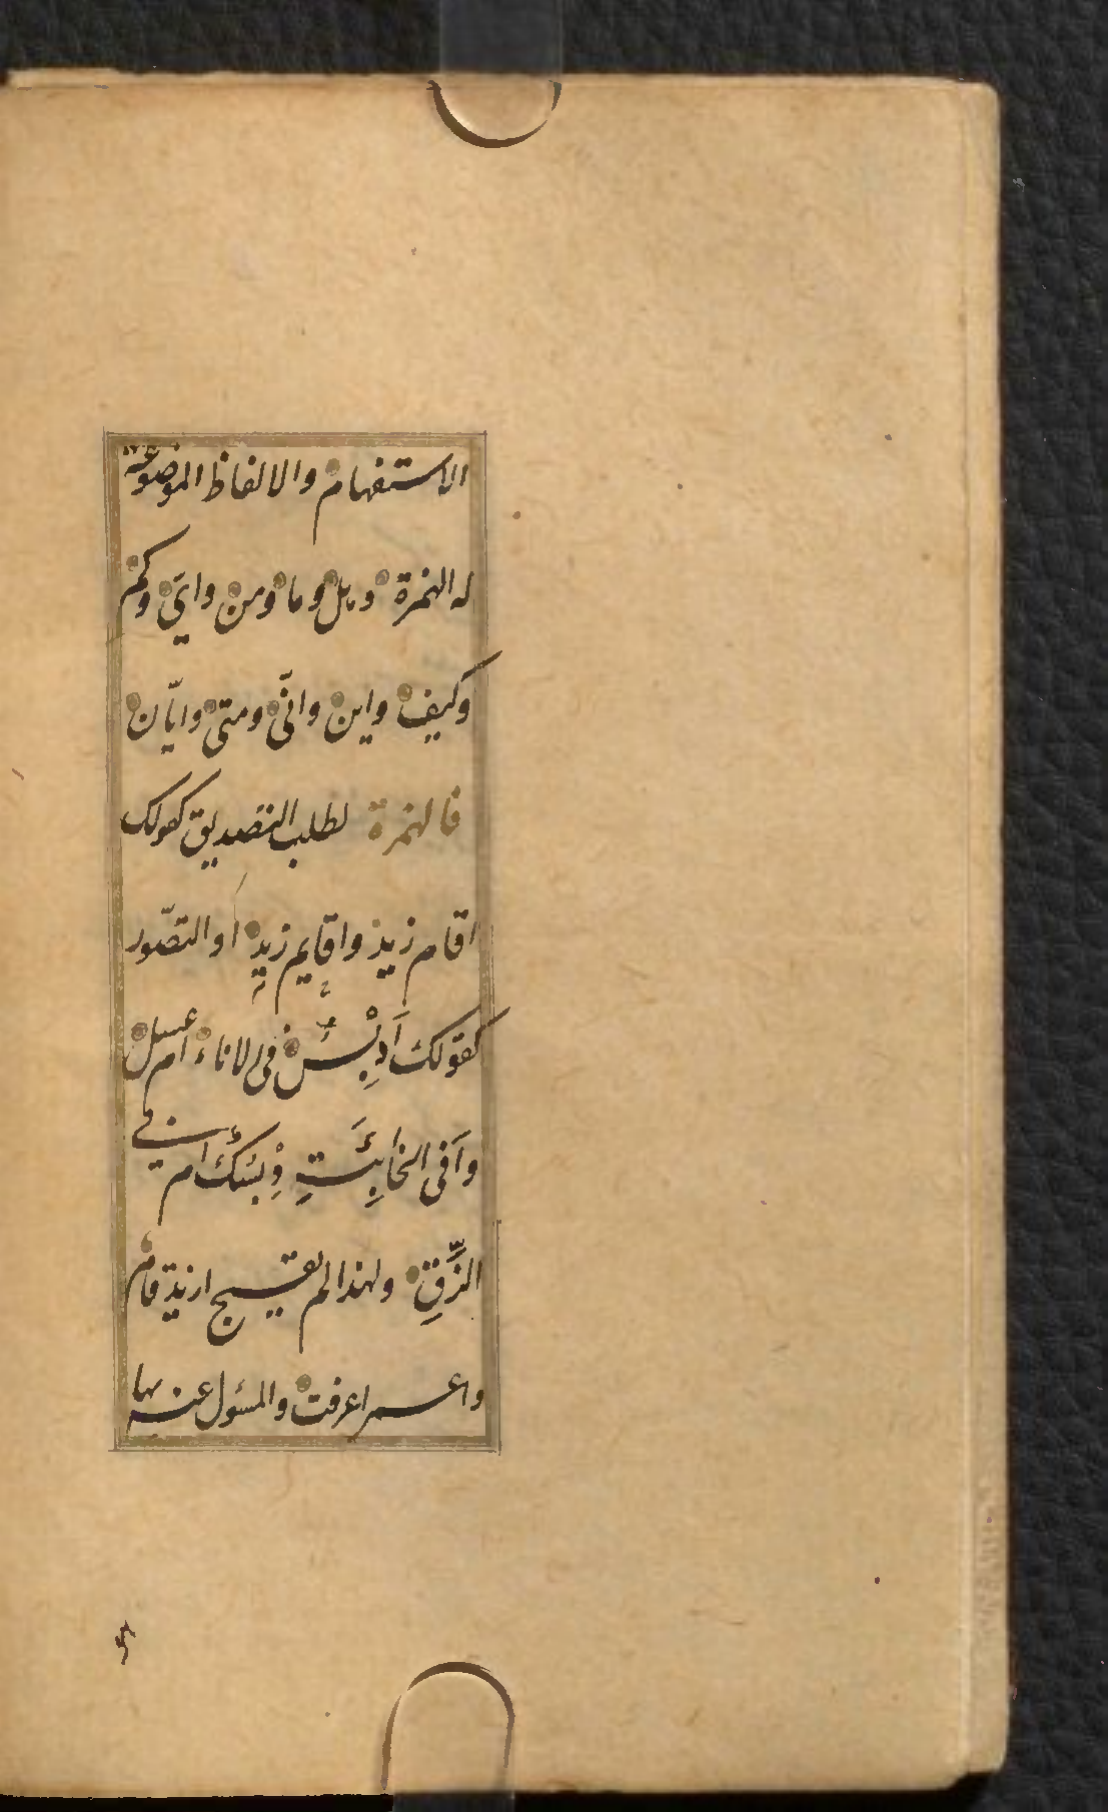 الاستفهام والالفاظ الموضوعة
له الهمزة وهل وما ومن واىّ وكم
وكيف واين وانّى ومتى وايّان
فالهمزة لطلب التصديق كقولك
اقام زيد واقايم زيد او التصّور
كقولك اَدِبْسٌ فى الاناء ام عسل
واَفى الخابِئَةِ دِبْسُكَ ام فى
الزِّقِّ ولهذا لم يقبح ازيد قام
واعمرا عرفت والمسئول عنه بها